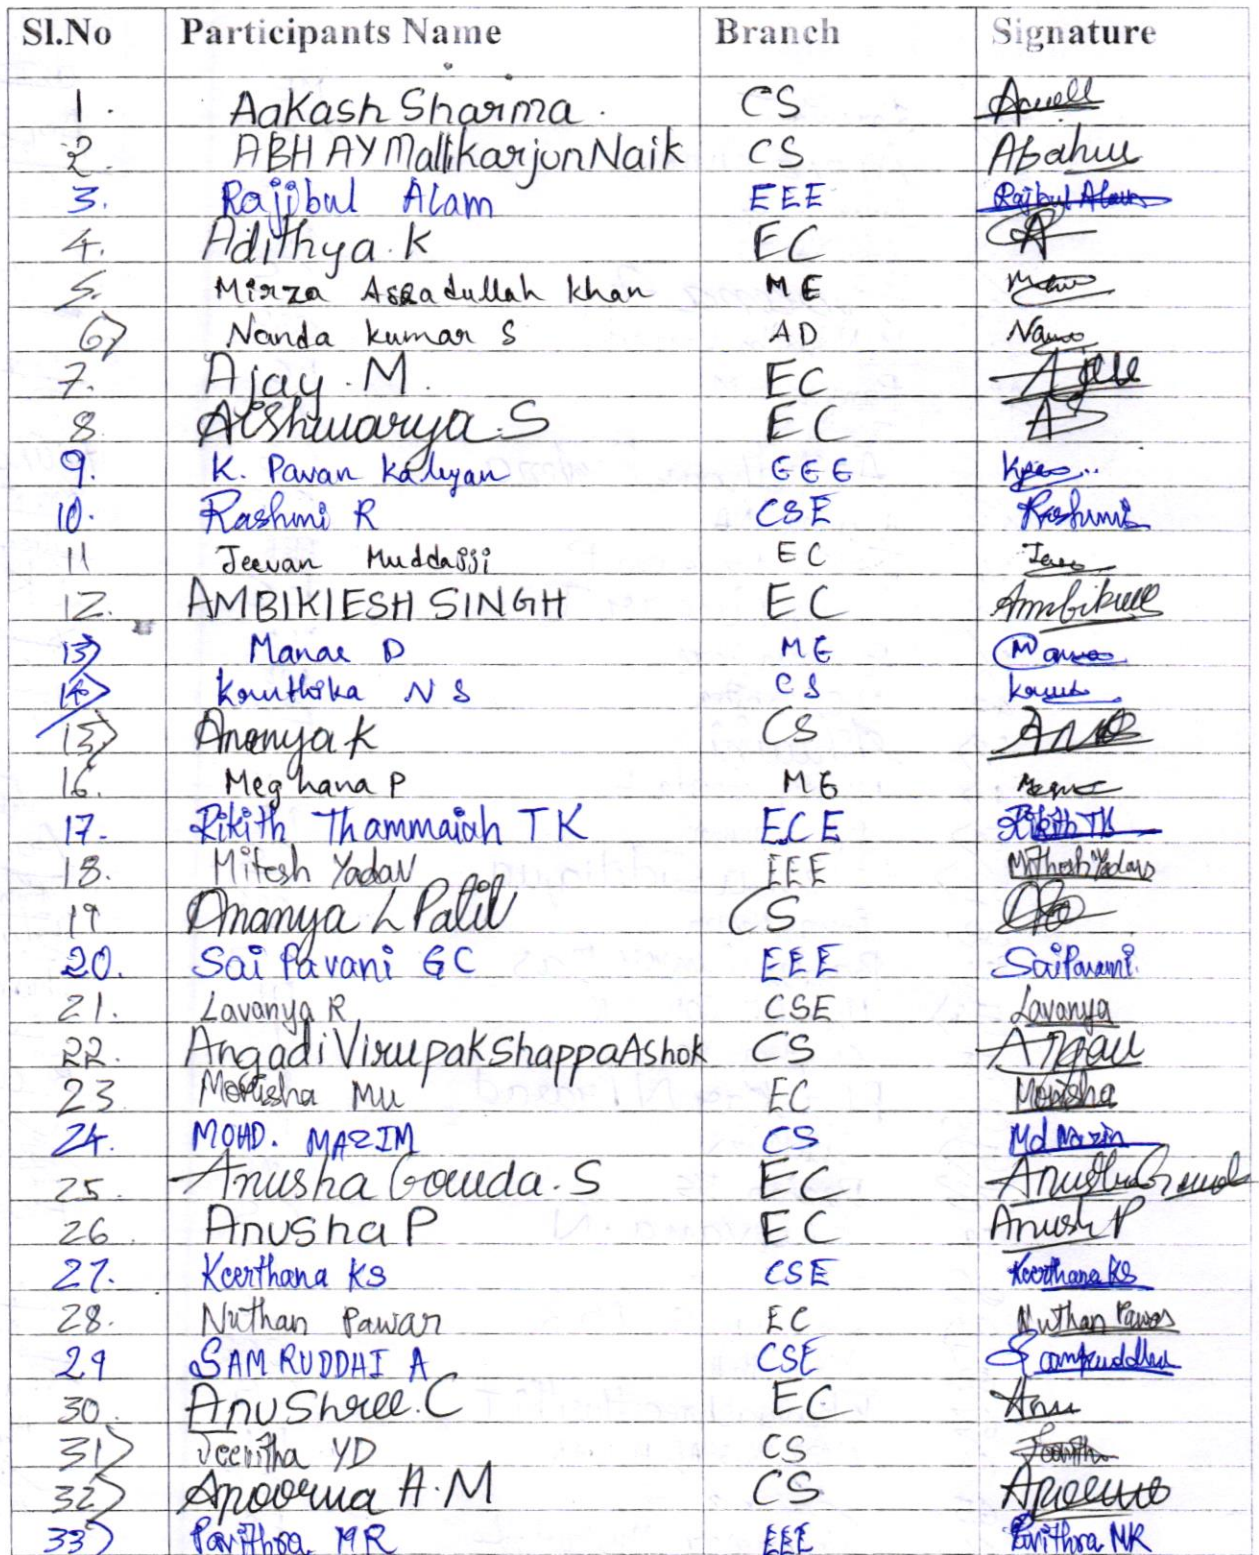 Sl.No Participants Name Branch Signature
1. Aakash Sharma. CS
2. ABHAY Mallikarjun Naik CS
3. Rajibul Alam EEE Rajbul Alam
4. Adithya.K EC A
5. Mirza Asgadullah khan ME
6) Nanda kumar S AD
7. Ajay.M. EC
8. Aishwarya.S EC AS
9. K. Pavan Kalyan EEE
10. Rashmi R CSE Rashmi
11 Jeevan Muddajji EC
12. AMBIKIESH SINGH EC
13) Manae D ME
14) Kouthika N S CS
15) Ananya K CS
16. Meghana P ME
17. Rikith Thammaiah TK ECE Rikith TK
18. Mitesh Yadav EEE Mithesh Yadav
19 Ananya L Patil CS
20. Sai Pavani GC EEE Sai Pavani
21. Lavanya R CSE Lavanya
22. Angadi Virupakshappa Ashok CS
23 Monisha Mu EC Monisha
24. MOHD. MAZIM CS Md Nazim
25. Anusha Gowda.S EC
26 Anusha P EC Anush P
27. Keerthana KS CSE Keerthana KS
28. Nuthan Pawar EC Nuthan Pawar
29 SAMRUDDHI A CSE
30. AnuShree.C EC Anu
31) Jeevitha YD CS
32) Apoorva H.M CS
33) Pavithra MR EEE Pavithra NR